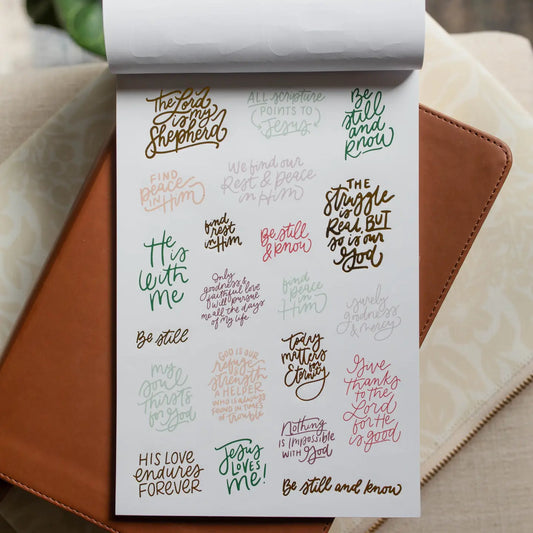 The Lord
is my
Shepherd
ALL scripture
POINTS TO
Jesus
Be
still
and
know
FIND
peace
in Him
We find our
Rest & Peace
in Him
THE
Struggle
is
Real, BUT
so is our
God
find
rest
in Him
Be still
& know
He
is
with
me
Only
goodness &
faithful love
will pursue
me all the days
of my life
find
peace
in
Him
surely
goodness
& mercy
Be still
Today
matters
for
Eternity
my
soul
Thirsts
for God
GOD IS OUR
refuge
strength
A HELPER
WHO IS ALWAYS
FOUND IN TIMES
of trouble
Give
Thanks
to the
Lord
for He
is good
Nothing
IS IMPOSSIBLE
WITH God
HIS LOVE
endures
FOREVER
Jesus
LOVES
me!
Be still and know